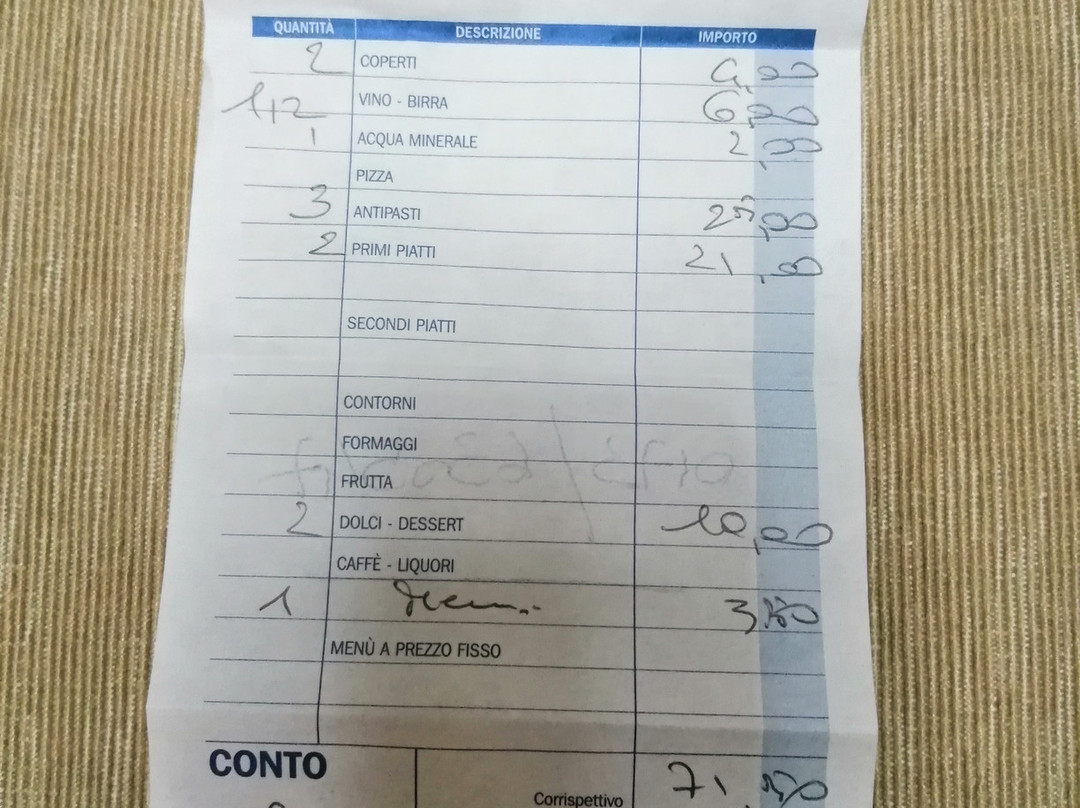 QUANTITÀ DESCRIZIONE IMPORTO
2 COPERTI 4,00
1/2 VINO - BIRRA 6,00
1 ACQUA MINERALE 2,00
PIZZA
3 ANTIPASTI 25,00
2 PRIMI PIATTI 21,00
SECONDI PIATTI
CONTORNI
FORMAGGI
FRUTTA
2 DOLCI - DESSERT 10,00
CAFFÈ - LIQUORI
1 3,50
MENÙ A PREZZO FISSO
CONTO
Corrispettivo 71,50